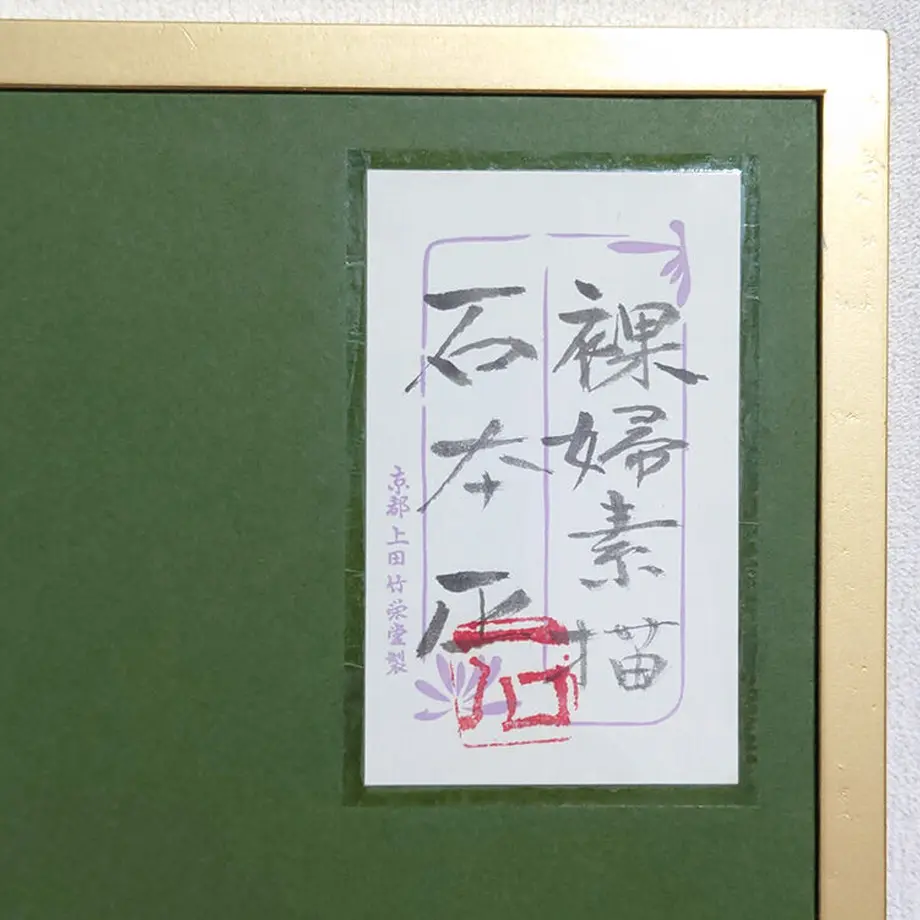 裸婦素描
石本正
京都 上田竹栄堂製
石